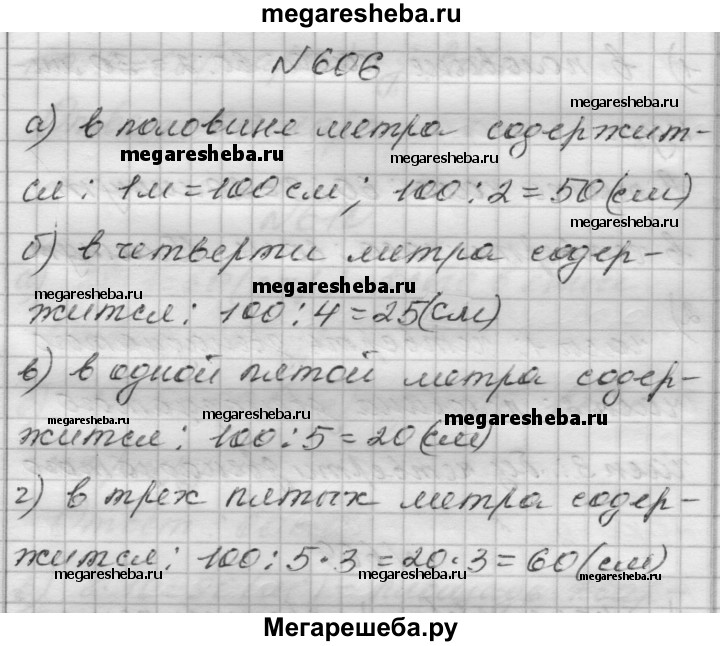 megaresheba.ru
N 606
megaresheba.ru
а) в половине метра содержит-
megaresheba.ru megaresheba.ru
ся: 1м=100см; 100:2=50(см)
megaresheba.ru
б) в четверти метра содер-
megaresheba.ru megaresheba.ru
жится: 100:4=25(см)
в) в одной пятой метра содер-
megaresheba.ru megaresheba.ru megaresheba.ru
жится: 100:5=20(см)
г) в трех пятых метра содер-
жится: 100:5·3=20·3=60(см)
megaresheba.ru megaresheba.ru megaresheba.ru
Мегарешеба.ру